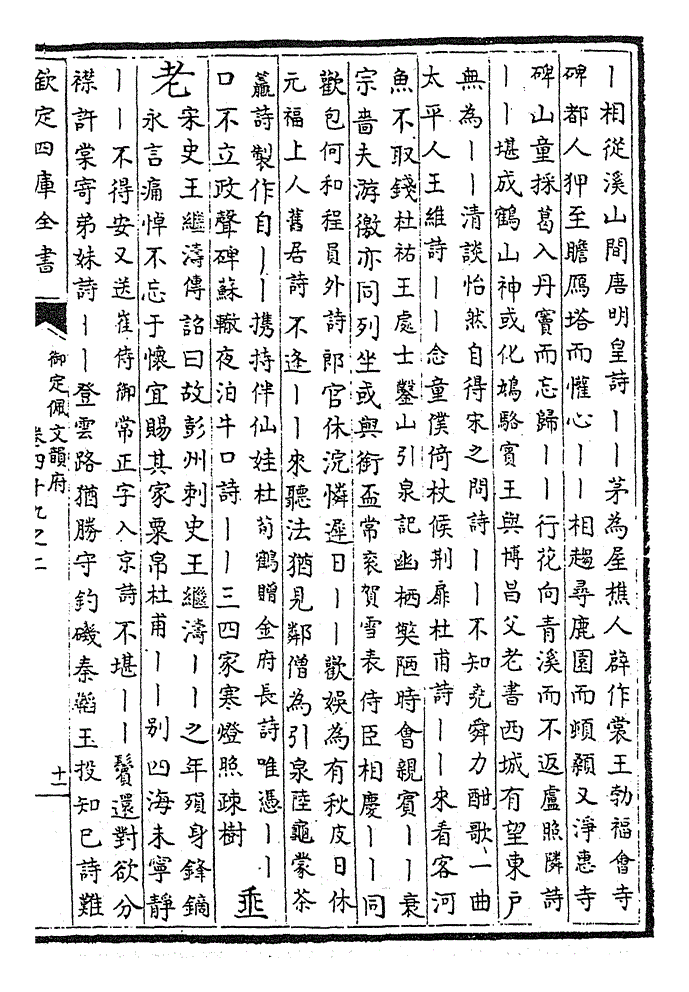 丨相從溪山間唐明皇詩丨丨茅為屋樵人辟作裳王勃福會寺
碑都人狎至瞻鴈塔而懽心丨丨相趨尋鹿園而頓顙又淨惠寺
碑山童採葛入丹竇而忘歸丨丨行花向青溪而不返盧照隣詩
丨丨堪成鶴山神或化鳩駱賓王與博昌父老書西城有望東戶
無為丨丨清談怡然自得宋之問詩丨丨不知堯舜力酣歌一曲
太平人王維詩丨丨念童僕倚杖候荆扉杜甫詩丨丨來看客河
魚不取錢杜祐王處士鑿山引泉記幽栖奬陋時會親賓丨丨衰
宗嗇夫游徼亦同列坐或與銜盃常衮賀雪表侍臣相慶丨丨同
歡包何和程員外詩郎官休浣憐遲日丨丨歡娛為有秋皮日休
元福上人舊居詩不逢丨丨來聽法猶見鄰僧為引泉陸龜蒙茶
籯詩製作自丨丨携持伴仙娃杜荀鶴贈金府長詩唯憑丨丨
口不立政聲碑蘇轍夜泊牛口詩丨丨三四家寒燈照疎樹 垂
老 宋史王繼濤傳詔曰故彭州刺史王繼濤丨丨之年殞身鋒鏑
永言痛悼不忘于懷宜賜其家粟帛杜甫丨丨别四海未寧靜
丨丨不得安又送崔侍御常正字入京詩不堪丨丨鬢還對欲分
襟許棠寄弟妹詩丨丨登雲路猶勝守釣磯秦韜玉投知己詩難
欽定四庫全書
御定佩文韻府
卷四十九之二
十二